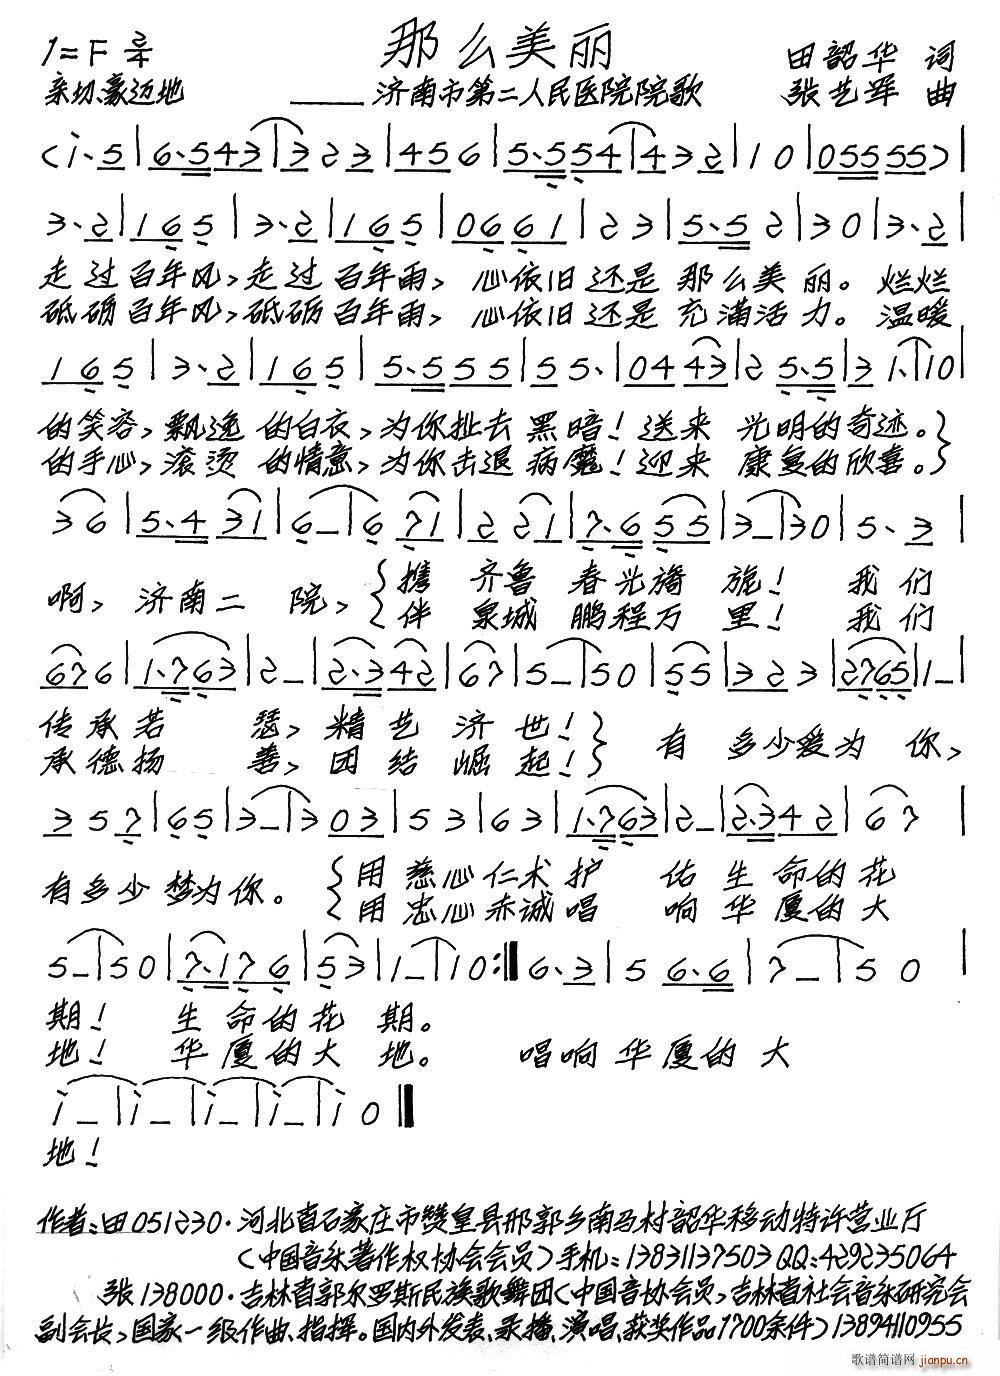 1=F 2/4 那么美丽 田韶华 词
亲切、豪迈地 ——济南市第二人民医院院歌 张艺军 曲
(i、5|6、543|3 2 3|456|5、554|432|1 0|05555)|
3、2|165|3、2|165|0661|23|5、52|30|3、2|
走过百年风,走过百年雨,心依旧还是那么美丽。烂烂
砥砺百年风,砥砺百年雨,心依旧还是充满活力。温暖
165|3、2|165|5、555|55、|0443|2 5、5|3 1、|10|
的笑容,飘逸的白衣,为你扯去黑暗!送来光明的奇迹。}
的手心,滚烫的情意,为你击退病魔!迎来康复的欣喜。}
36|5、4 31|6–|6 71|2 21|7、6 55|3–|30|5、3|
啊,济南二院,{携齐鲁春光旖旎!我们
{伴泉城鹏程万里!我们
676|1、763|2–|2、342|67|5–|50|55|323|2765|1–|
传承若瑟,精艺济世!}有多少爱为你,
承德扬善,团结崛起!}
357|65|3–|3 03|53|63|1、763|2–|2、342|67|
有多少梦为你。{用慈心仁术护佑生命的花
{用忠心赤诚唱响华厦的大
5–|50|7、176|53|1–|10:‖6、3|5 6、6|7–|5 0|
期!生命的花期。
地!华厦的大地。唱响华厦的大
i–|i–|i–|i–|i 0‖
地!
作者:田051230·河北省石家庄市赞皇县邢郭乡南马村韶华移动特许营业厅
(中国音乐著作权协会会员)手机:13831137503 QQ:429235064
张138000·吉林省郭尔罗斯民族歌舞团(中国音协会员,吉林省社会音乐研究会
副会长,国家一级作曲、指挥。国内外发表、录播、演唱、获奖作品1700余件)13894110955
歌谱简谱网 jianpu.cn